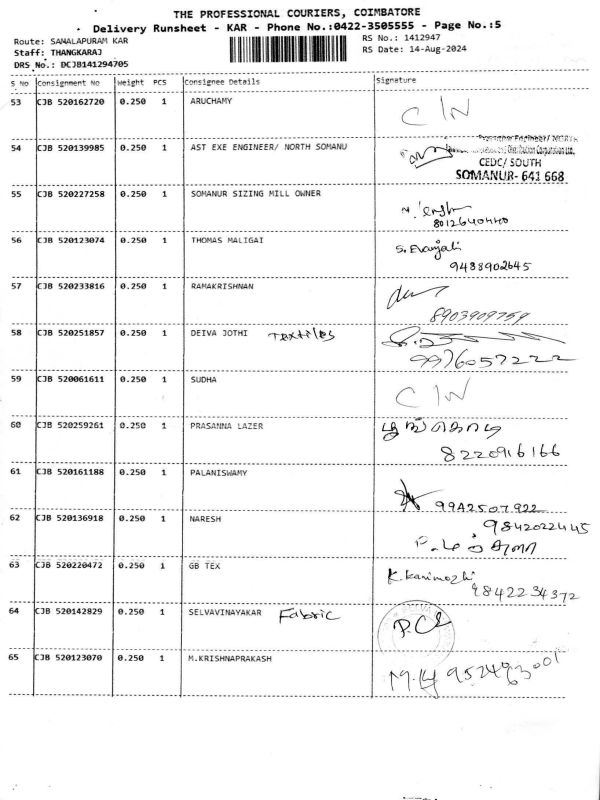 THE PROFESSIONAL COURIERS, COIMBATORE
Delivery Runsheet - KAR - Phone No.:0422-3505555 - Page No.:5
Route: SAMALAPURAM KAR
RS No.: 1412947
Staff: THANGKARAJ
RS Date: 14-Aug-2024
DRS No.: DCJB141294705
S No Consignment No Weight PCS Consignee Details Signature
53 CJB 520162720 0.250 1 ARUCHAMY C/N
54 CJB 520139985 0.250 1 AST EXE ENGINEER/ NORTH SOMANU
Distribution Corporation Ltd.,
CEDC/ SOUTH
SOMANUR- 641 668
55 CJB 520227258 0.250 1 SOMANUR SIZING MILL OWNER
8012640440
56 CJB 520123074 0.250 1 THOMAS MALIGAI S. Evanjali
9488902645
57 CJB 520233816 0.250 1 RAMAKRISHNAN
8903909759
58 CJB 520251857 0.250 1 DEIVA JOTHI Textiles
9976057222
59 CJB 520061611 0.250 1 SUDHA C/N
60 CJB 520259261 0.250 1 PRASANNA LAZER பூங்கொடி
8220916166
61 CJB 520161188 0.250 1 PALANISWAMY
9942507922
62 CJB 520136918 0.250 1 NARESH 9842022445
63 CJB 520220472 0.250 1 GB TEX K. Kanimozhi
9842234372
64 CJB 520142829 0.250 1 SELVAVINAYAKAR Fabric
65 CJB 520123070 0.250 1 M.KRISHNAPRAKASH